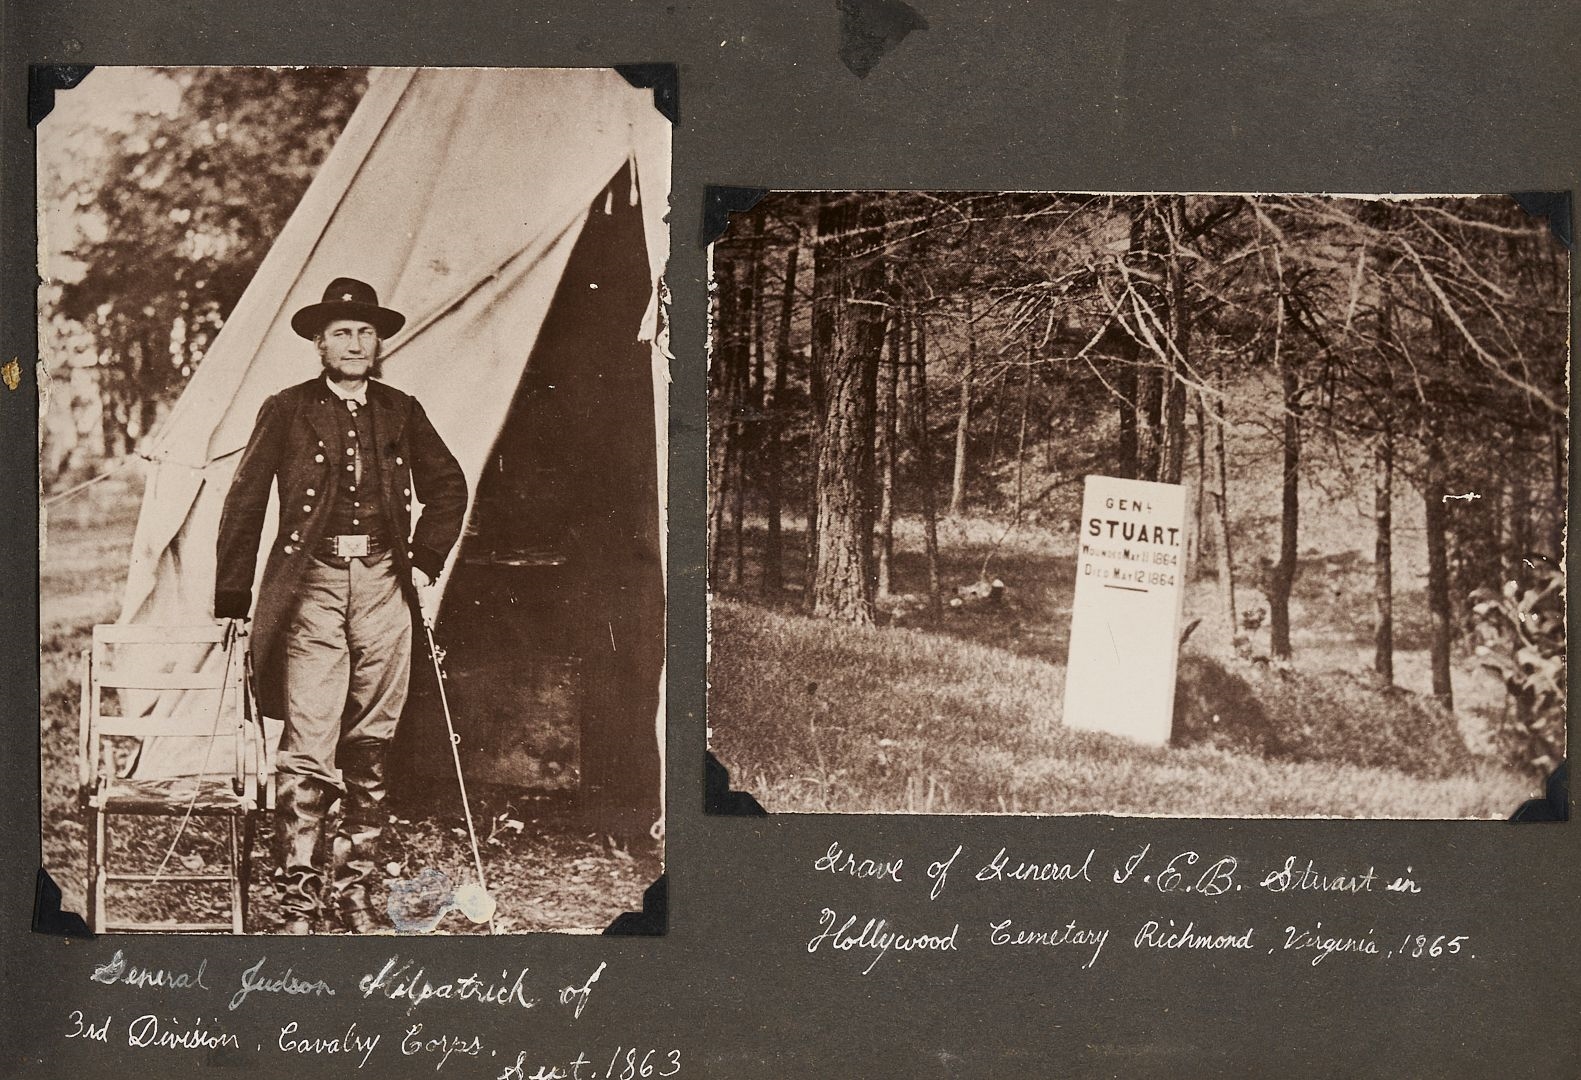 General Judson Kilpatrick of
3rd Division. Cavalry Corps.
Sept. 1863
GENL
STUART.
WOUNDED MAY 11 1864
DIED MAY 12 1864
Grave of General J.E.B. Stuart in
Hollywood Cemetary Richmond, Virginia, 1865.